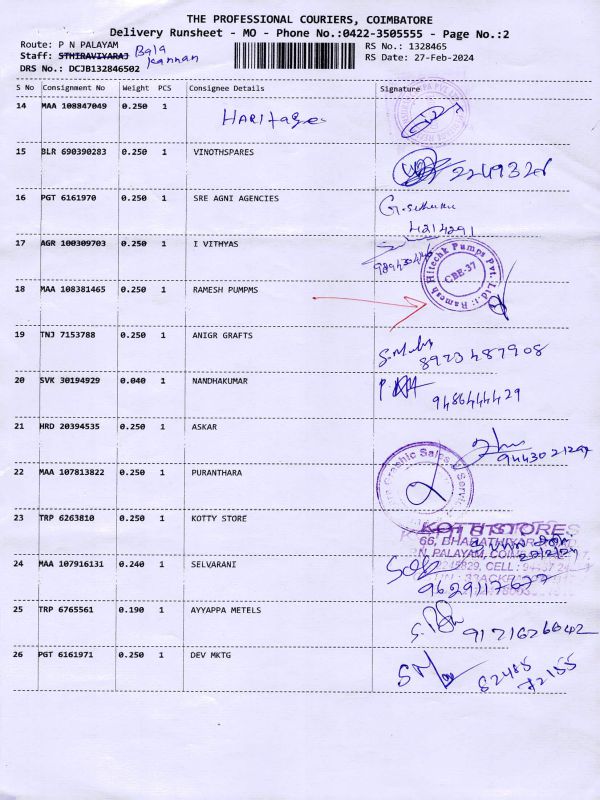 THE PROFESSIONAL COURIERS, COIMBATORE
Delivery Runsheet - MO - Phone No.:0422-3505555 - Page No.:2
Route: P N PALAYAM
RS No.: 1328465
Staff: STHIRAVIYARAJ Bala Kannan
RS Date: 27-Feb-2024
DRS No.: DCJB132846502
S No Consignment No Weight PCS Consignee Details Signature
14 MAA 108847049 0.250 1 HARItage
15 BLR 690390283 0.250 1 VINOTHSPARES
2249328
16 PGT 6161970 0.250 1 SRE AGNI AGENCIES
4214291
17 AGR 100309703 0.250 1 I VITHYAS
Ramesh Hitechk Pumps Pvt. Ltd.
CBE-37
18 MAA 108381465 0.250 1 RAMESH PUMPMS
19 TNJ 7153788 0.250 1 ANIGR GRAFTS
8923487908
20 SVK 30194929 0.040 1 NANDHAKUMAR
9486444429
21 HRD 20394535 0.250 1 ASKAR
22 MAA 107813822 0.250 1 PURANTHARA
Graphic Sales & Servic
23 TRP 6263810 0.250 1 KOTTY STORE
KOTTI STORES
66, BHARATHIYAR
N. PALAYAM,
24 MAA 107916131 0.240 1 SELVARANI
9629117677
25 TRP 6765561 0.190 1 AYYAPPA METELS
9171626642
26 PGT 6161971 0.250 1 DEV MKTG
82485
72155